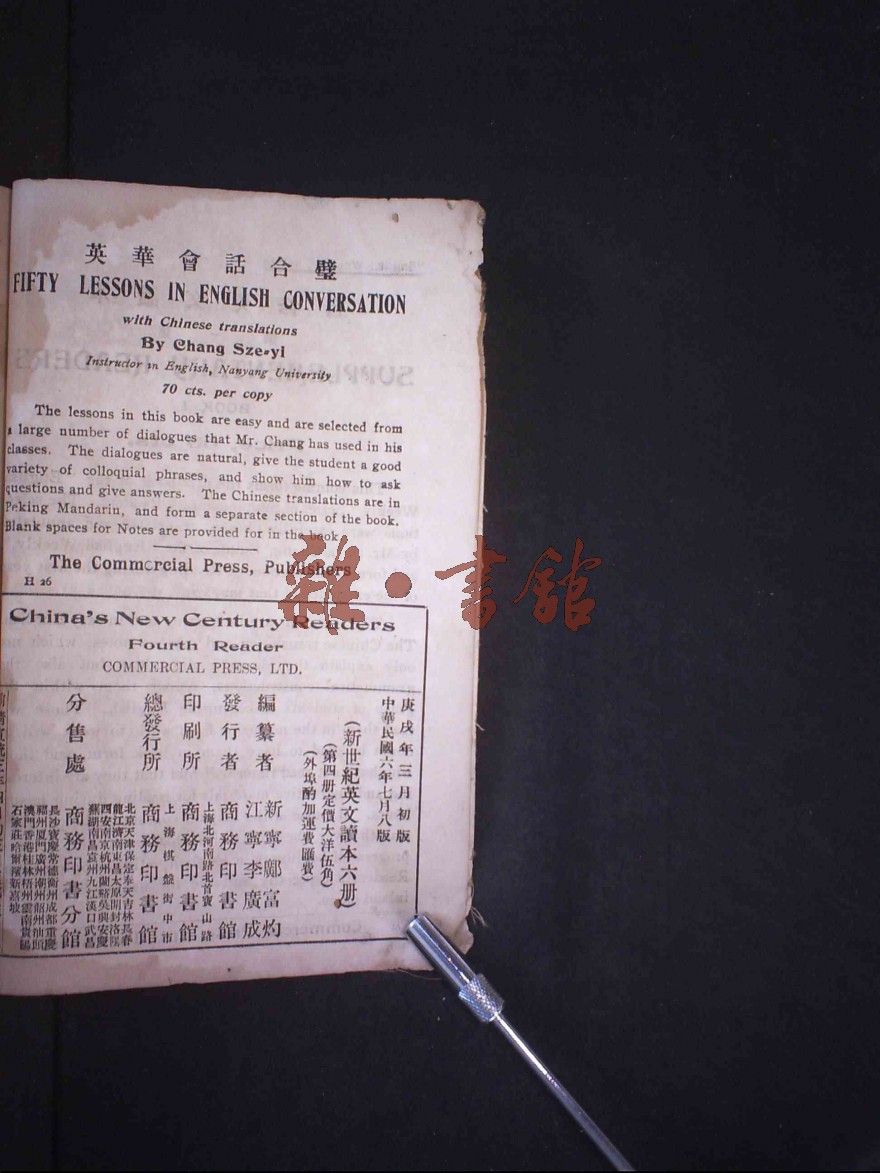 英華會話合璧
FIFTY LESSONS IN ENGLISH CONVERSATION
with Chinese translations
By Chang Sze-yi
Instructor in English, Nanyang University
70 cts. per copy
The lessons in this book are easy and are selected from
a large number of dialogues that Mr. Chang has used in his
classes. The dialogues are natural, give the student a good
variety of colloquial phrases, and show him how to ask
questions and give answers. The Chinese translations are in
Peking Mandarin, and form a separate section of the book.
Blank spaces for Notes are provided for in the book.
The Commercial Press, Publishers
H 26
雜·書館
China's New Century Readers
Fourth Reader
COMMERCIAL PRESS, LTD.
庚戌年三月初版
中華民國六年七月八版
(新世紀英文讀本六册)
(第四册定價大洋伍角)
(外埠酌加運費匯費)
編纂者 新寧鄺富灼
江寧李廣成
發行者 商務印書館
上海北河南路北首寶山路
印刷所 商務印書館
上海棋盤街中市
總發行所 商務印書館
北京天津保定奉天吉林長春
龍江濟南東昌太原開封洛陽
西安南京杭州蘭谿吳興安慶
蕪湖南昌袁州九江漢口武昌
分售處 商務印書分館
長沙寶慶常德衡州成都重慶
福州廈門廣州潮州韶州汕頭
澳門香港桂林梧州雲南貴陽
石家莊哈爾濱新嘉坡